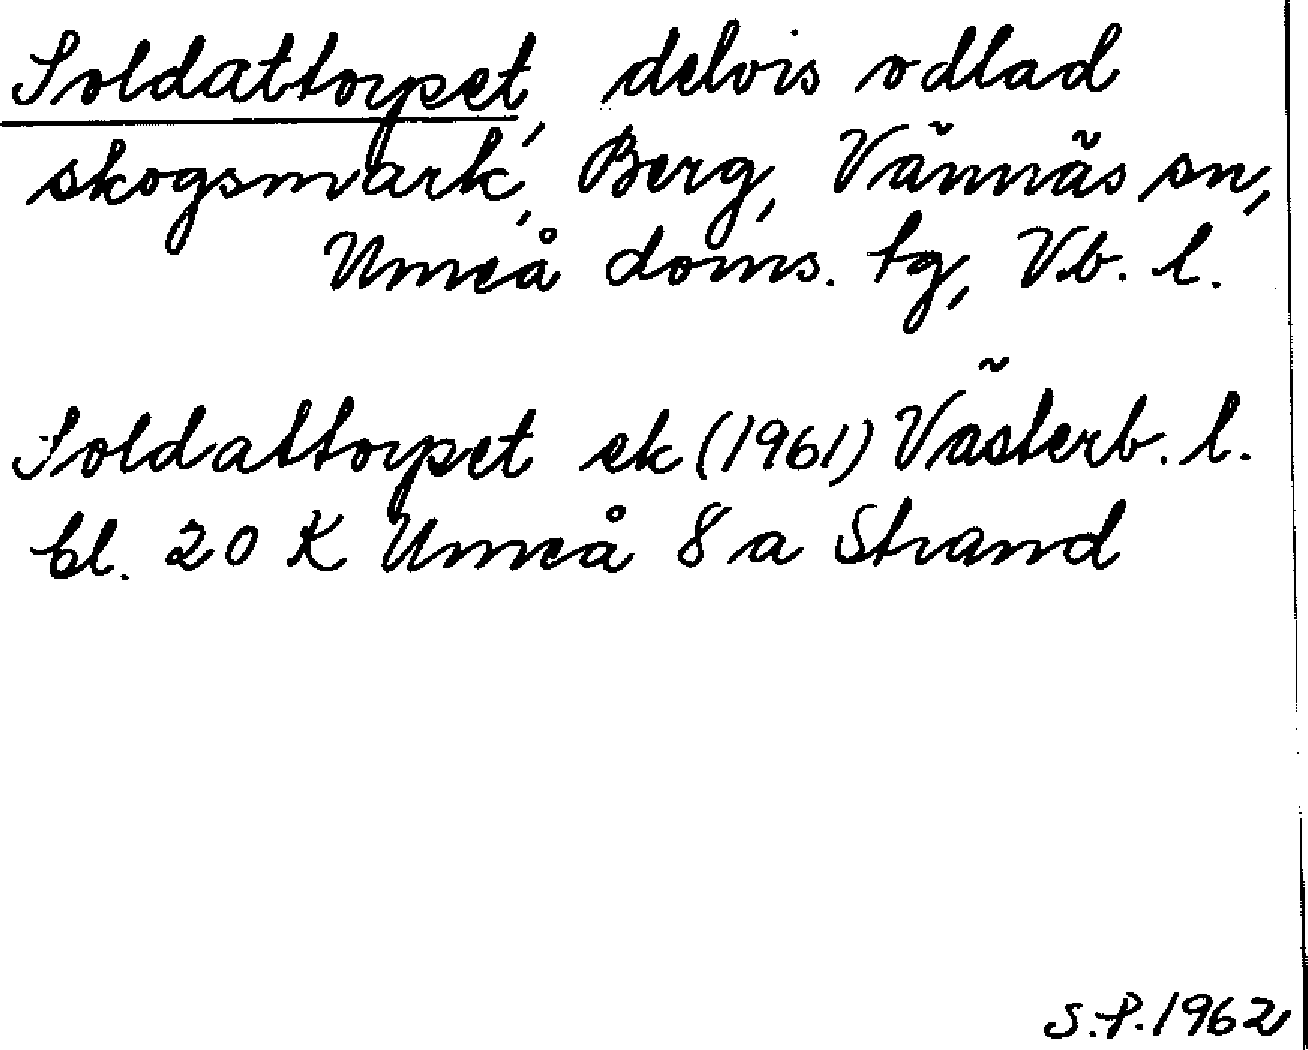 Soldattorpet, delvis odlad
skogsmark, Berg, Vännäs sn,
Umeå doms. tg, Vb. l.
Soldattorpet ek (1961) Västerb. l.
bl. 20 K Umeå 8 a Strand
S.P. 1962